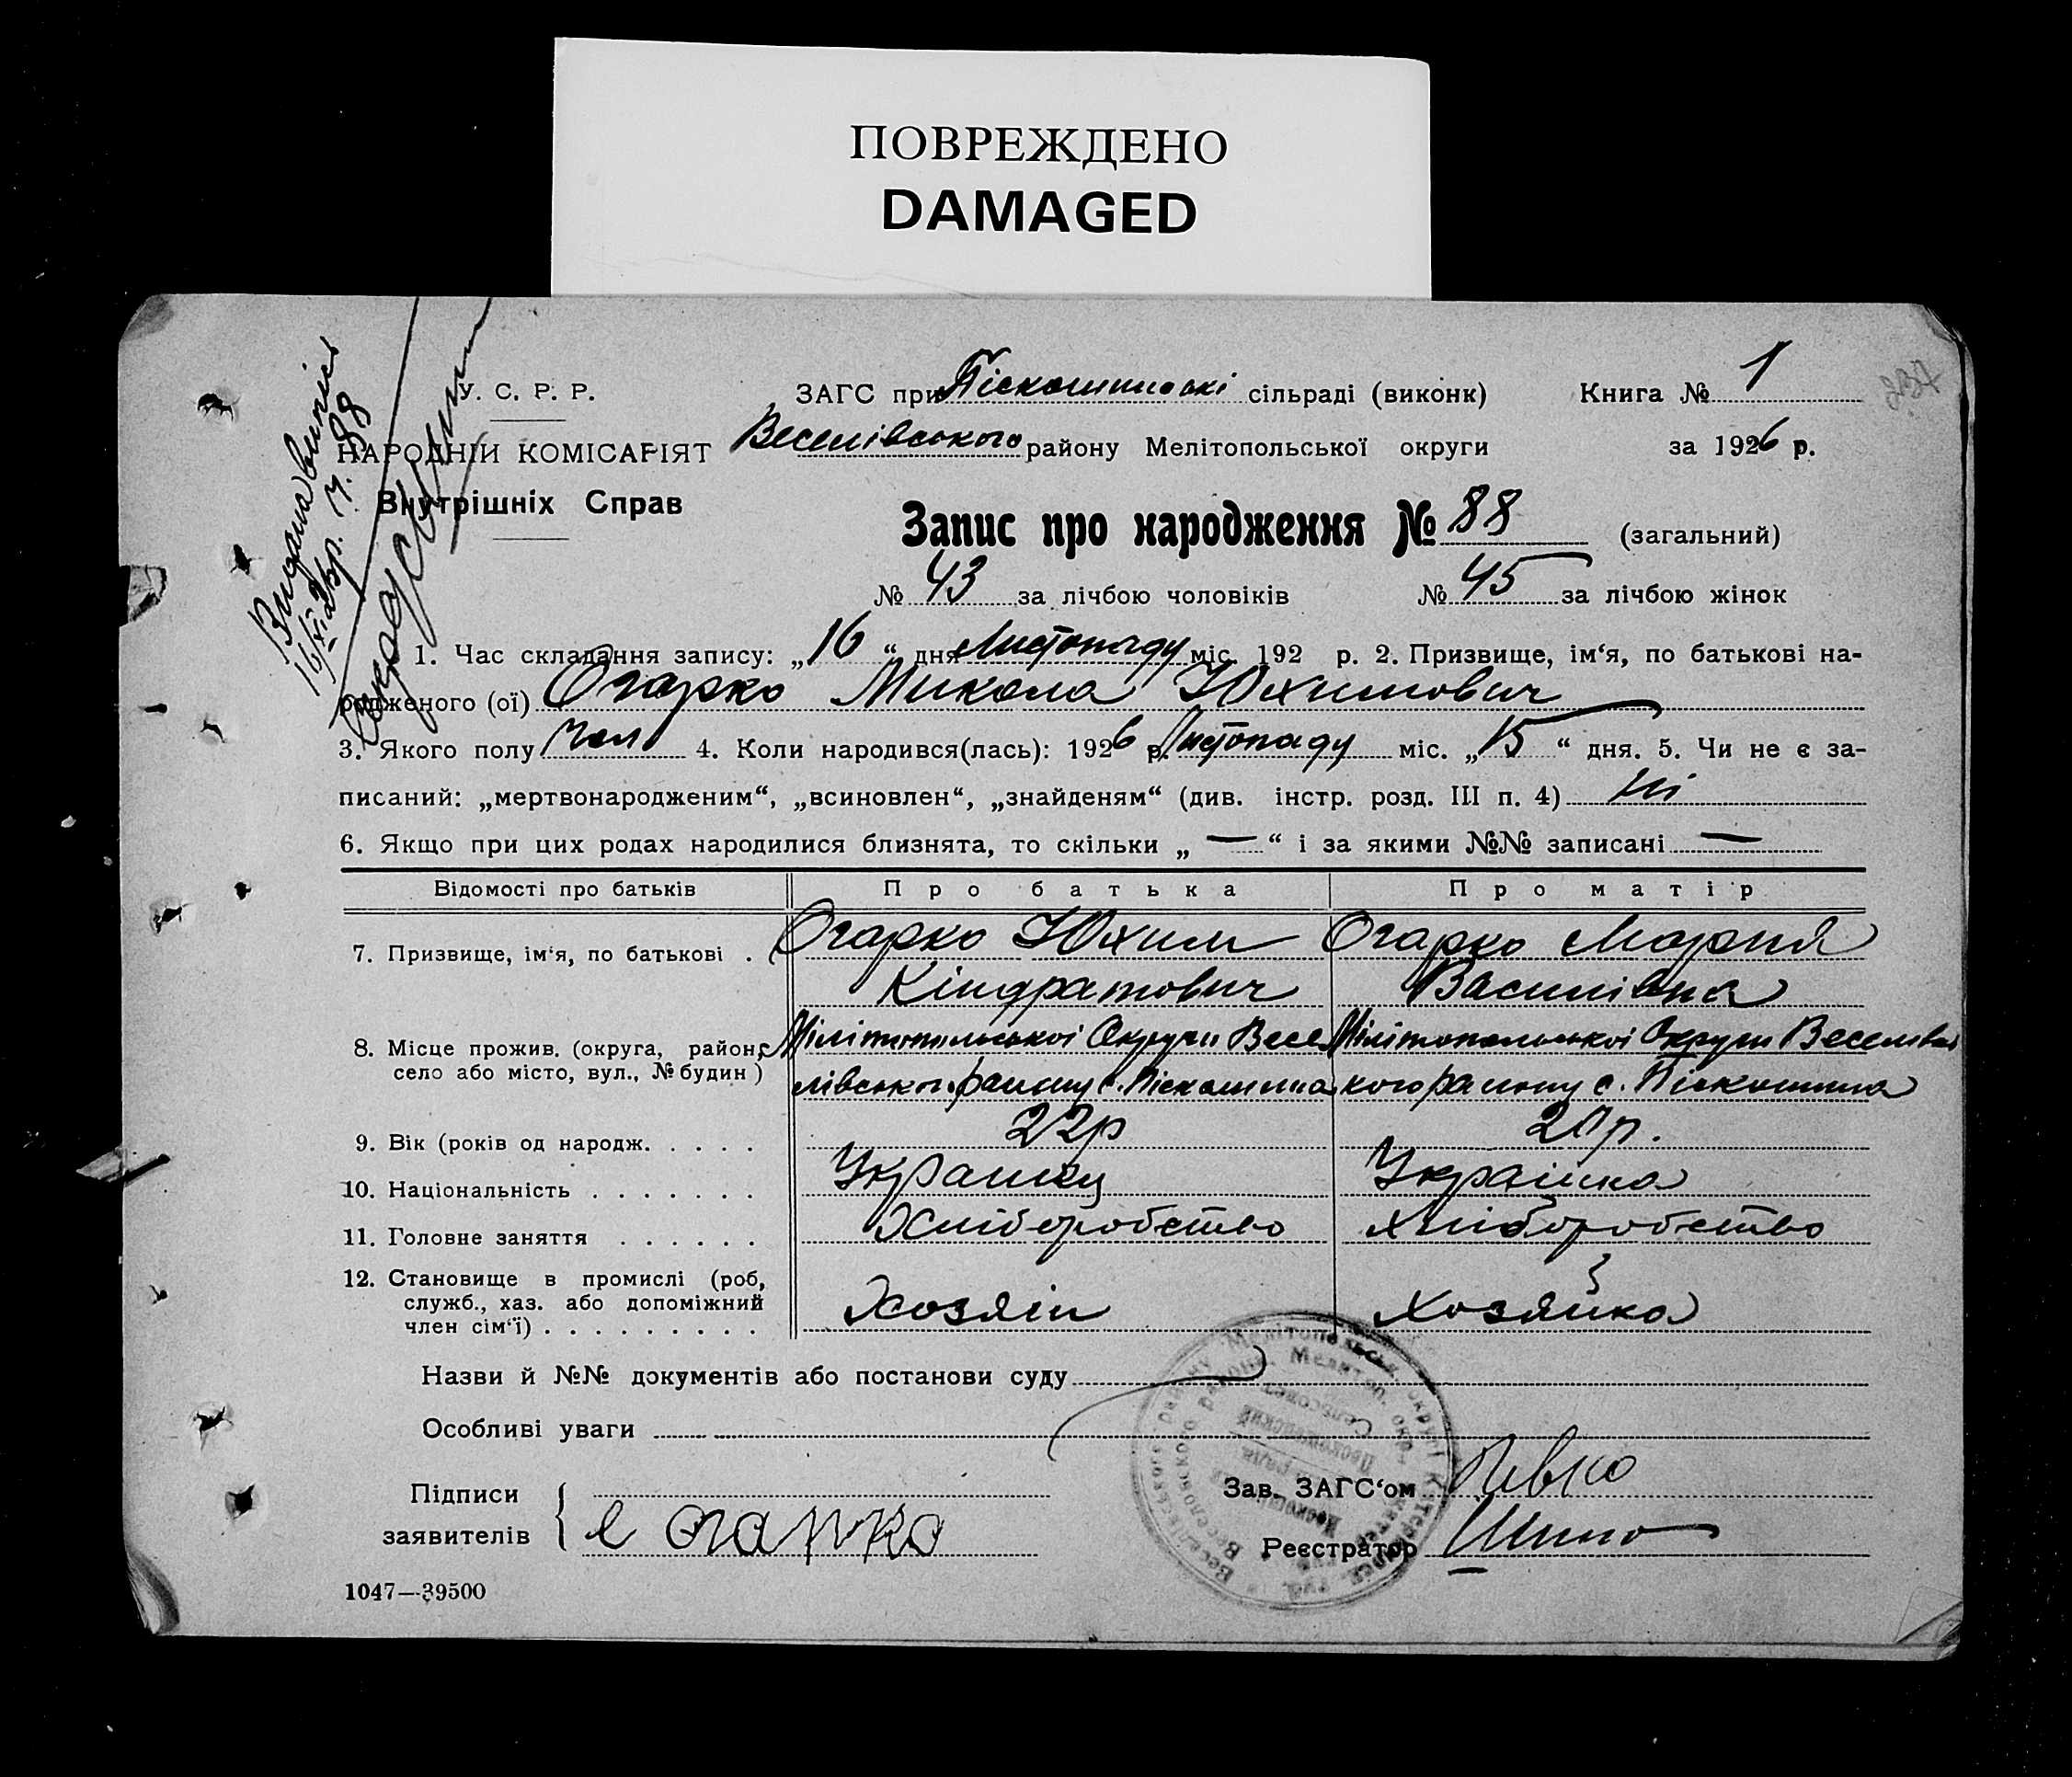 ПОВРЕЖДЕНО
DAMAGED
У. С. Р. Р.
ЗАГС при Піскошинські сільраді (виконк)
Книга № 1
НАРОДНІЙ КОМІСАРІЯТ
Веселівського району Мелітопольської округи
за 1926 р.
Внутрішніх Справ
Запис про народження № 88 (загальний)
№ 43 за лічбою чоловіків № 45 за лічбою жінок
1. Час складання запису: „16“ дня Листопаду міс. 192 р. 2. Призвище, ім‘я, по батькові на-
родженого (ої) Огарко Микола Юхимович
3. Якого полу чол 4. Коли народився(лась): 1926 р. Листопаду міс. „15“ дня. 5. Чи не є за-
писаний: „мертвонародженим“, „всиновлен“, „знайденям“ (див. інстр. розд. III п. 4) ні
6. Якщо при цих родах народилися близнята, то скільки „ — “ і за якими №№ записані —
Відомості про батьків Про батька Про матір
7. Призвище, ім‘я, по батькові . Огарко Юхим Огарко Мария
Кіндратович Василівна
8. Місце прожив. (округа, район, Мілітопольської Округи Весе Мілітопольської Округи Веселівсь
село або місто, вул., № будин) лівського району с. Піскошина кого району с. Піскошина
9. Вік (років од народж. . . . . . 22р 20р.
10. Національність . . . . . . . Украинец Українка
11. Головне заняття . . . . . . Хліборобство хліборобство
12. Становище в промислі (роб,
служб., хаз. або допоміжний
член сім‘ї) . . . . . . . . . Хозяін Хозяйка
Назви й №№ документів або постанови суду
Особливі уваги
Підписи
заявителів
е огарко
Зав. ЗАГС‘ом
Реєстратор
1047—39500